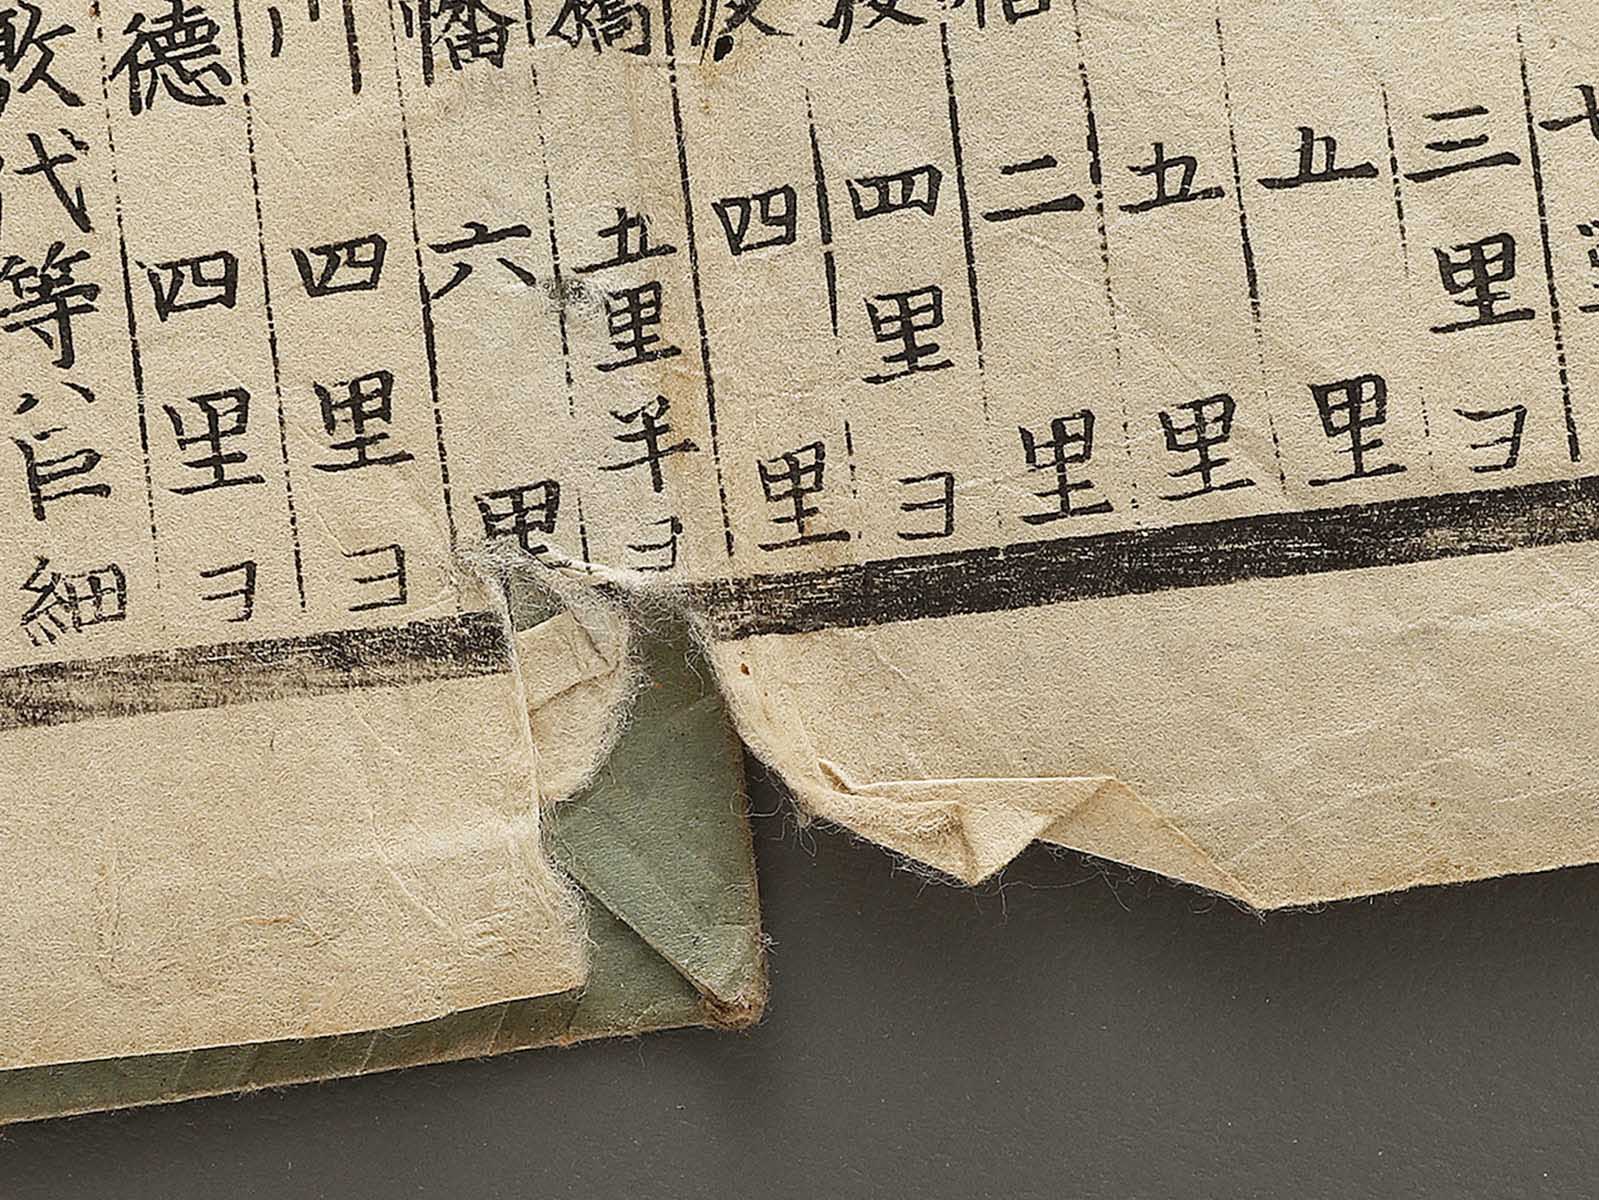 三里ヨ
五里
五里
二里
四里ヨ
四里
五里半ヨ
幡六里
川四里ヨ
德四里ヨ
代等ハ巨細